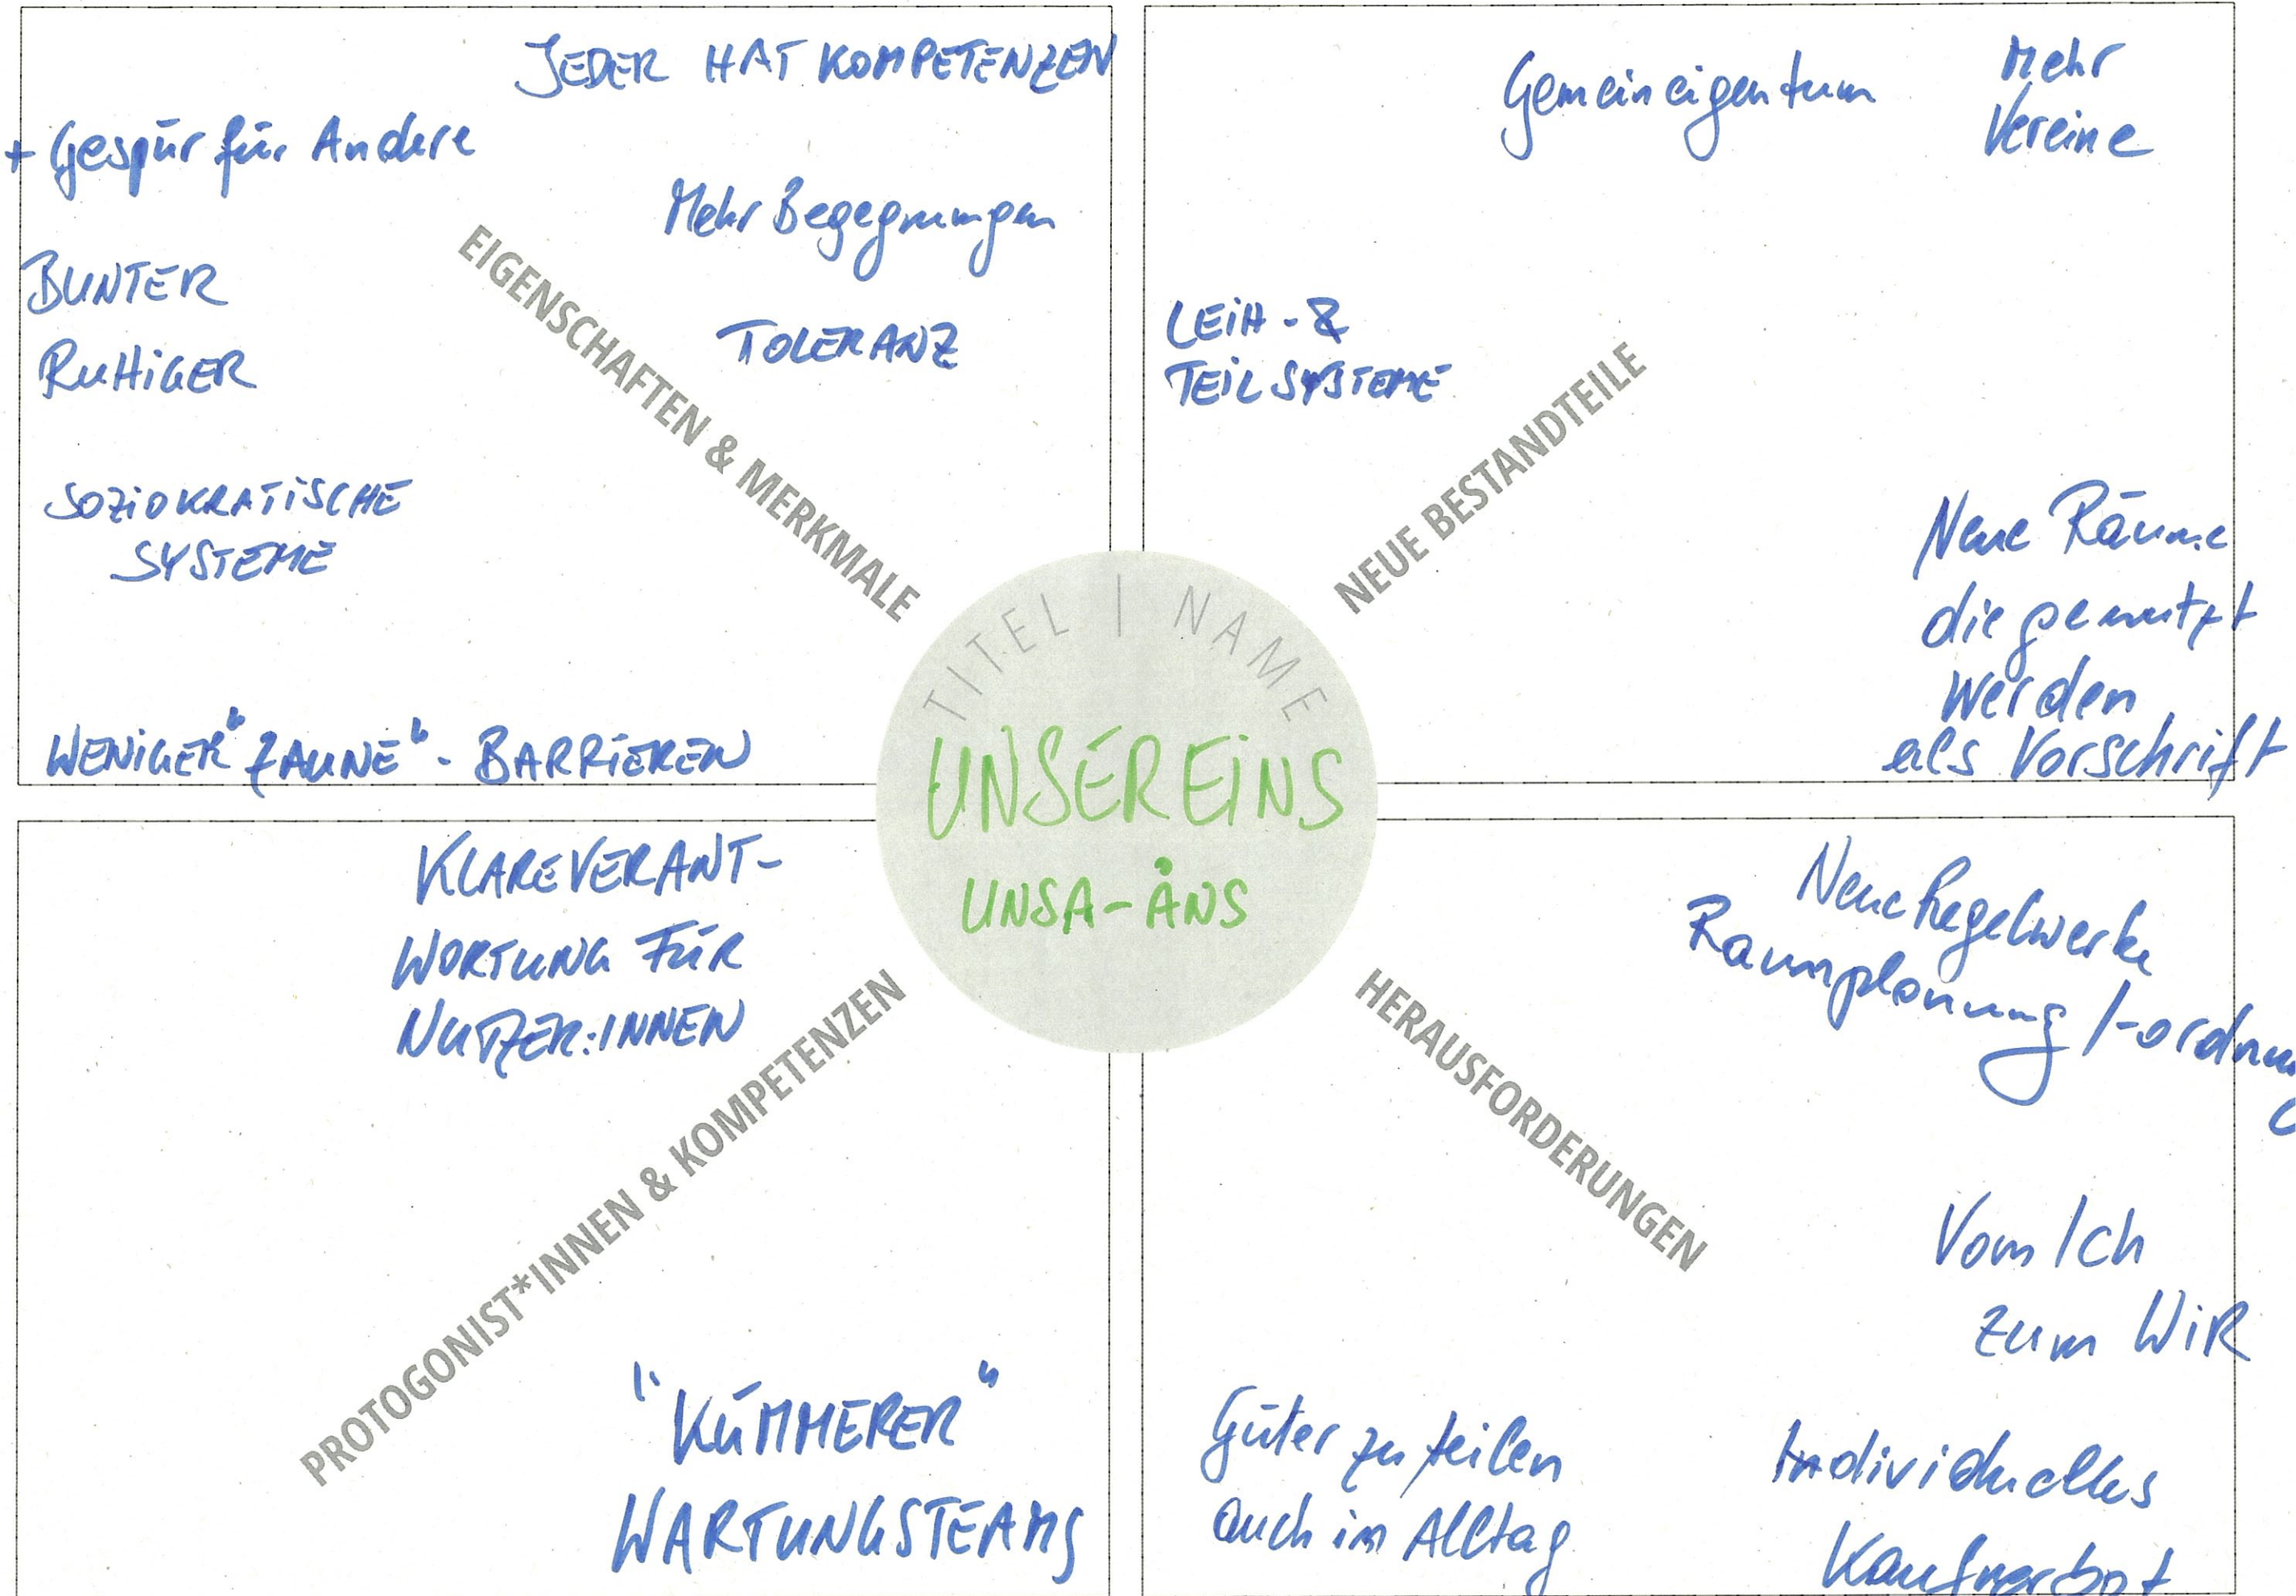 JEDER HAT KOMPETENZEN
+ Gespür für Andere
Mehr Begegnungen
BUNTER
RUHIGER
TOLERANZ
SOZIOKRATISCHE
SYSTEME
WENIGER "ZÄUNE" - BARRIEREN
EIGENSCHAFTEN & MERKMALE
Gemeineigentum
Mehr
Vereine
LEIH - &
TEILSYSTEME
Neue Räume
die genutzt
werden
als Vorschrift
NEUE BESTANDTEILE
TITEL | NAME
UNSEREINS
UNSA-ÅNS
KLARE VERANT-
WORTUNG FÜR
NUTZER:INNEN
"KÜMMERER"
WARTUNGSTEAMS
PROTOGONIST*INNEN & KOMPETENZEN
Neue Regelwerke
Raumplanung /-ordnung
Vom Ich
zum WIR
Güter zu teilen
auch im Alltag
Individuelles
Kaufverbot
HERAUSFORDERUNGEN